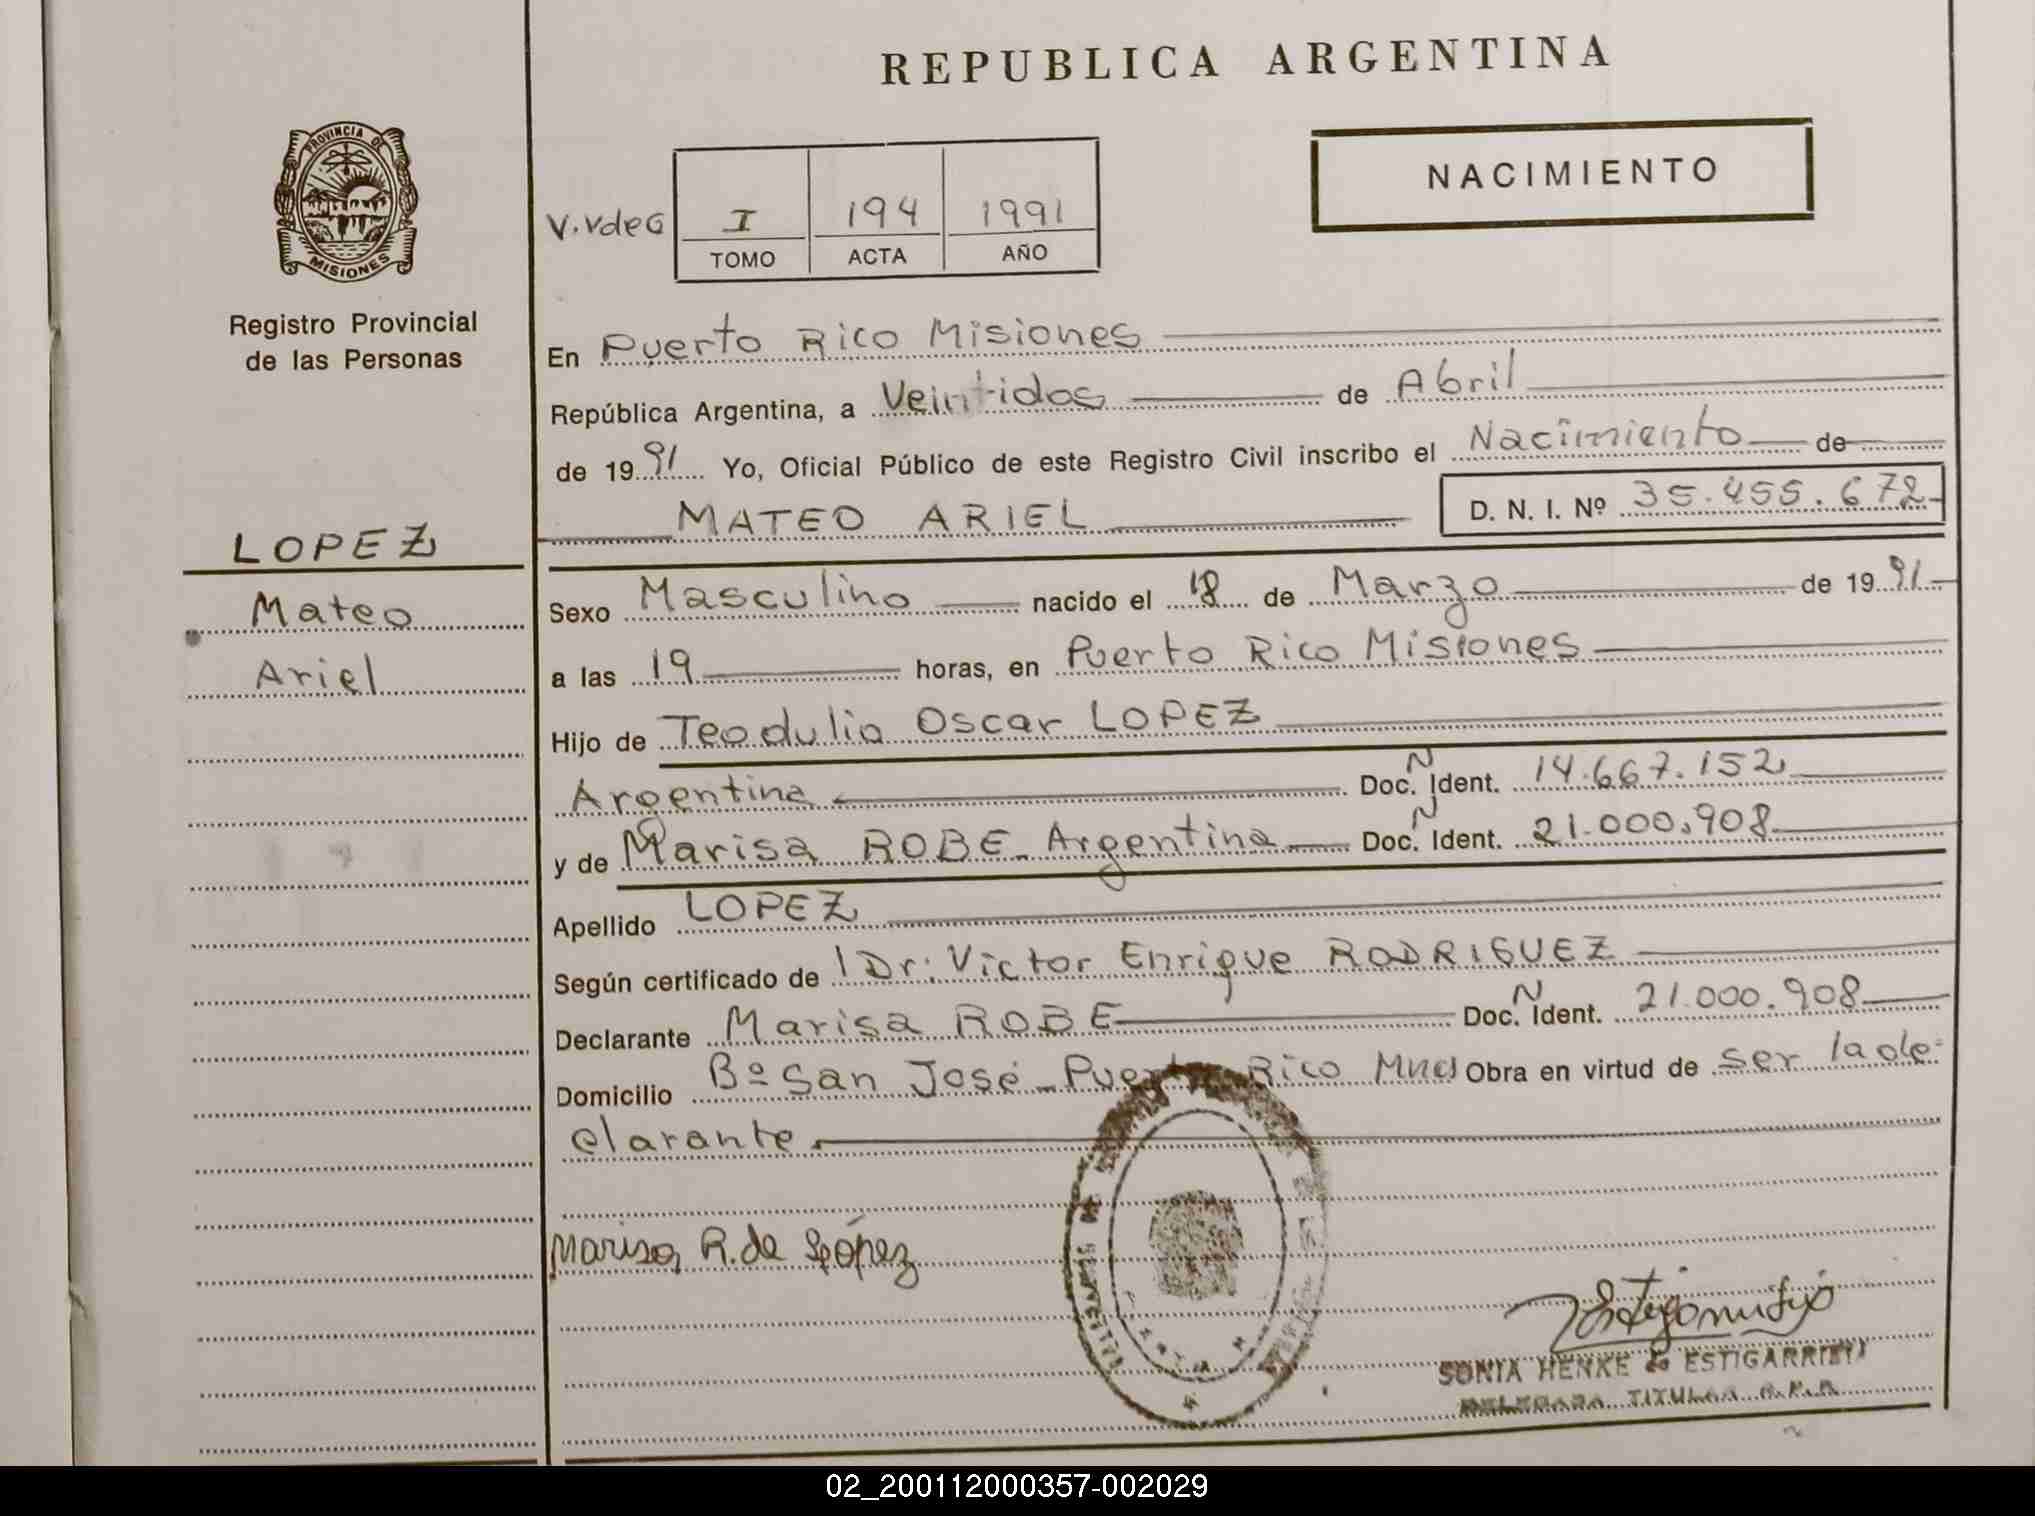 REPUBLICA ARGENTINA
NACIMIENTO
PROVINCIA DE
MISIONES
Registro Provincial
de las Personas
V.VdeG
I 194 1991
TOMO ACTA AÑO
En Puerto Rico Misiones
República Argentina, a Veintidos de Abril
de 1991 Yo, Oficial Público de este Registro Civil inscribo el Nacimiento de
MATEO ARIEL D. N. I. Nº 35.455.672
LOPEZ
Mateo
Ariel
Sexo Masculino nacido el 18 de Marzo de 1991
a las 19 horas, en Puerto Rico Misiones
Hijo de Teodulio Oscar LOPEZ
Argentina Doc. N Ident. 14.667.152
y de Marisa ROBE Argentina Doc. N Ident. 21.000.908
Apellido LOPEZ
Según certificado de Dr: Victor Enrique RODRIGUEZ
Declarante Marisa ROBE Doc. N Ident. 21.000.908
Domicilio Bº San José Puerto Rico Mnes Obra en virtud de ser la de
clarante.
Marisa R. de López
SONIA HENKE de ESTIGARRIBIA
DELEGADA TITULAR R.P.P.
02_200112000357-002029